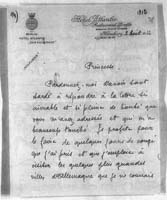 Hôtel Atlantic
Hamburg
Princesse
Pardonnez-moi d'avoir tant
tardé à répondre à la lettre si
aimable et si pleine de bonté que
vous m'avez adressée et qui m'a
beaucoup touché. Je profite
de quelques jours de congé
que j'ai pris et que j'emploie à
visiter les quelques plus grandes
villes d'Allemagne que je ne connais